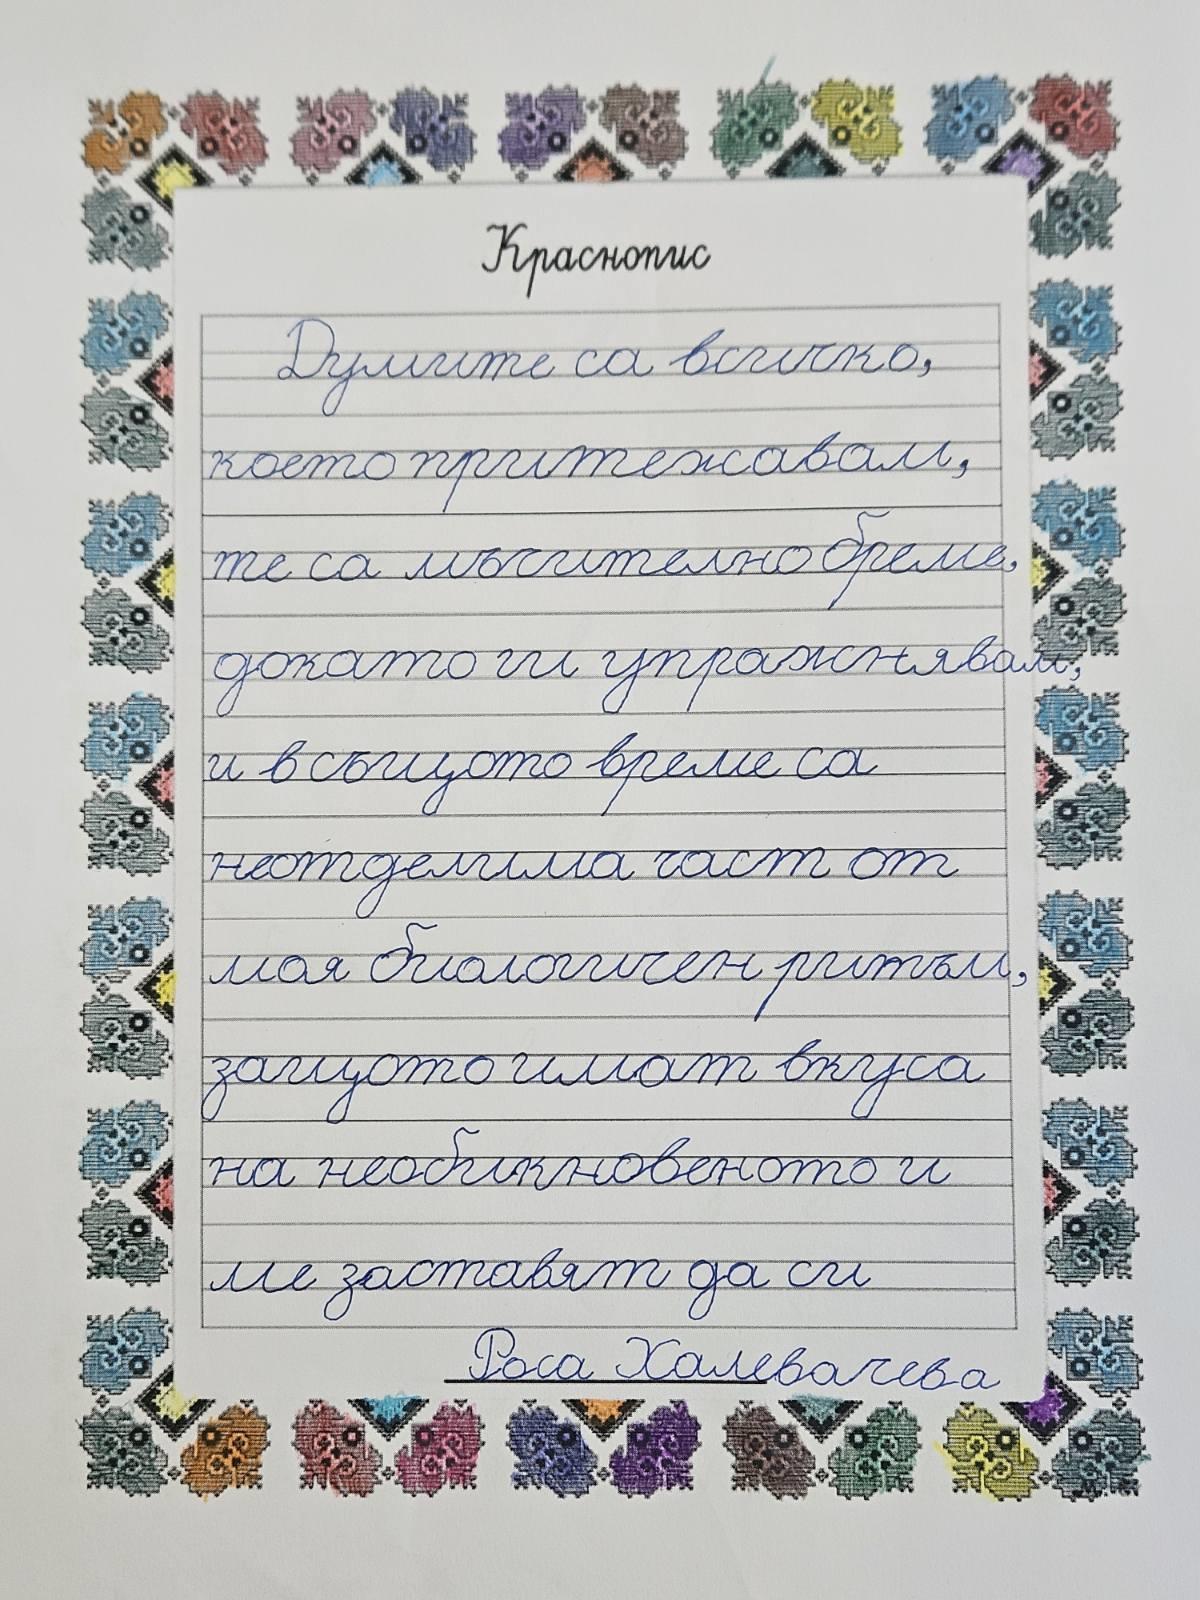 Краснопис
Думите са всичко,
което притежавам,
те са мъчително бреме,
докато ги упражнявам,
и в същото време са
неотделима част от
моя биологичен ритъм,
защото имат вкуса
на необикновеното и
ме заставят да си
Роса Халевачева